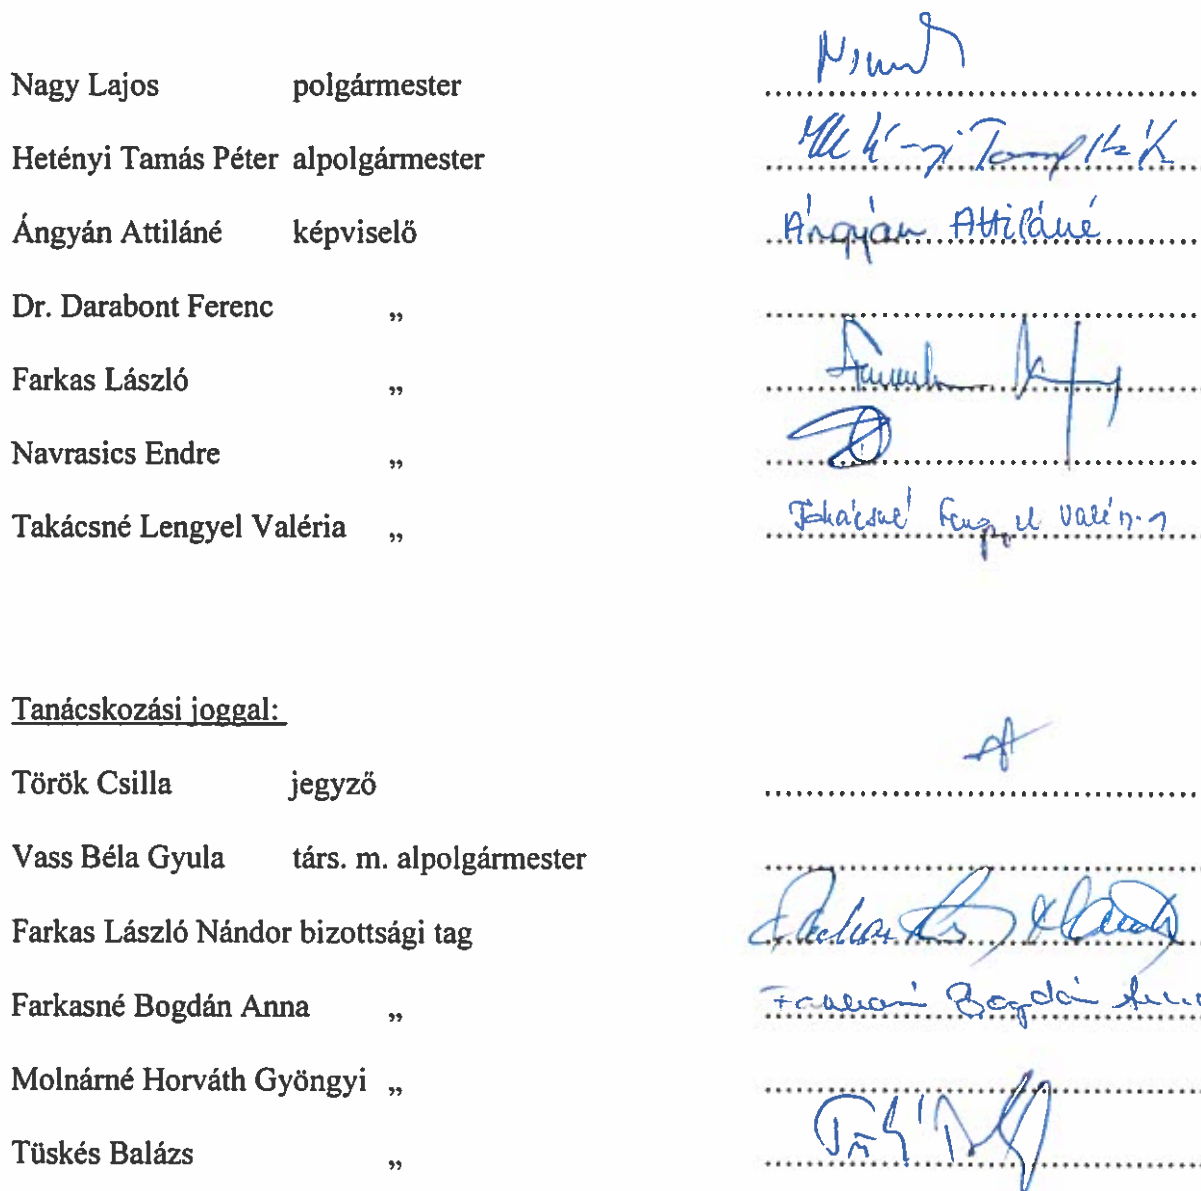 Nagy Lajos polgármester
Hetényi Tamás Péter alpolgármester
Ángyán Attiláné képviselő Ángyán Attiláné
Dr. Darabont Ferenc „
Farkas László „
Navrasics Endre „
Takácsné Lengyel Valéria „ Takácsné Lengyel Valéria
Tanácskozási joggal:
Török Csilla jegyző
Vass Béla Gyula társ. m. alpolgármester
Farkas László Nándor bizottsági tag
Farkasné Bogdán Anna „ Farkasné Bogdán Anna
Molnárné Horváth Gyöngyi „
Tüskés Balázs „